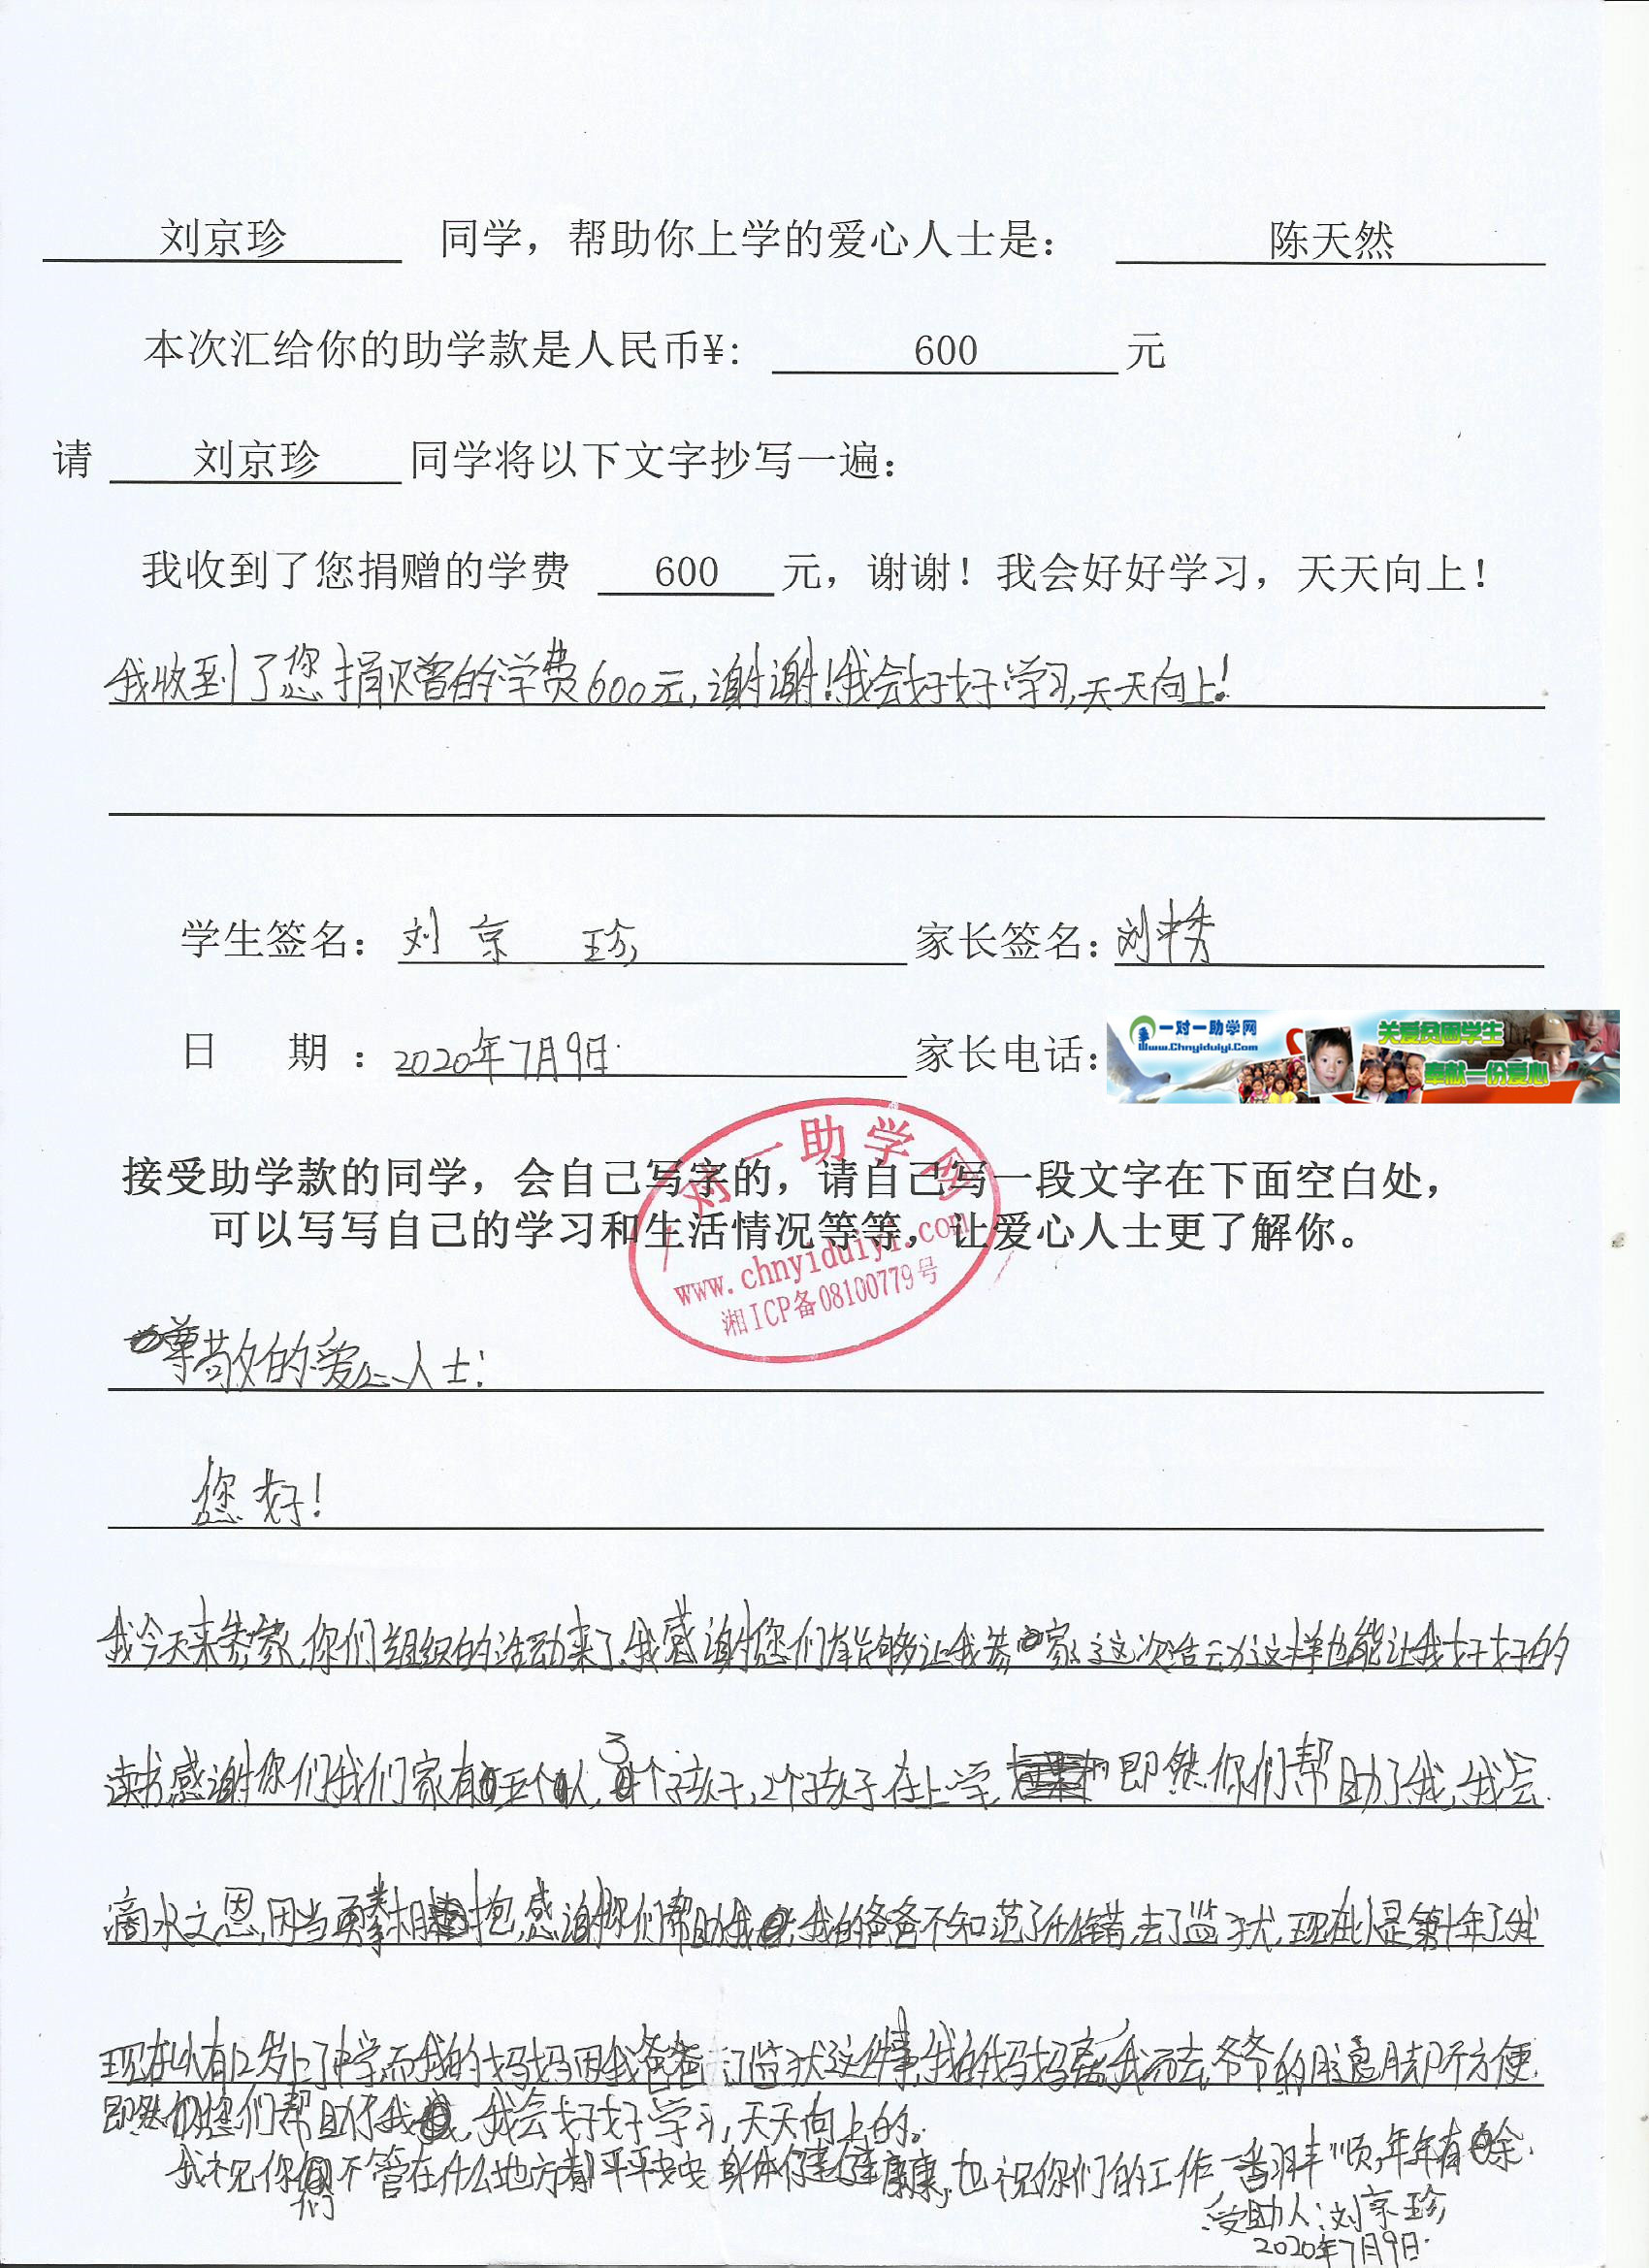 刘京珍 同学，帮助你上学的爱心人士是： 陈天然
本次汇给你的助学款是人民币¥: 600 元
请 刘京珍 同学将以下文字抄写一遍：
我收到了您捐赠的学费 600 元，谢谢！我会好好学习，天天向上！
我收到了您捐赠的学费600元,谢谢!我会好好学习,天天向上!
学生签名： 刘京珍 家长签名：刘
日 期：2020年7月9日. 家长电话：
一对一助学网
Www.Chnyiduiyi.Com
关爱贫困学生
奉献一份爱心
一对一助学网
www.chnyiduiyi.com
湘ICP备08100779号
接受助学款的同学，会自己写字的，请自己写一段文字在下面空白处，
可以写写自己的学习和生活情况等等，让爱心人士更了解你。
尊敬的爱心人士:
您好!
我今天来参家,你们组织的活动来了,我感谢您们有能够让我参家这次活动这样也能让我好好的
读书,感谢你们我们家有五个人,3个孩子,2个孩子在上学,即然你们帮助了我,我会.
滴水之恩,因当勇相抱,感谢你们帮助我,我的爸爸不知范了什么错,去了监犹,现在是第十年了我
现在有12岁上了中学,而我的妈妈因我爸爸 了监犹这件事,我的妈妈离我而去,爷爷的腿脚不方便.
即然您们帮助了我,我会好好学习,天天向上的。
我祝你们不管在什么地方都平平安安,身体健健康康,也祝你们的工作一番丰顺,年年有余.
受助人:刘京珍
2020年7月9日.